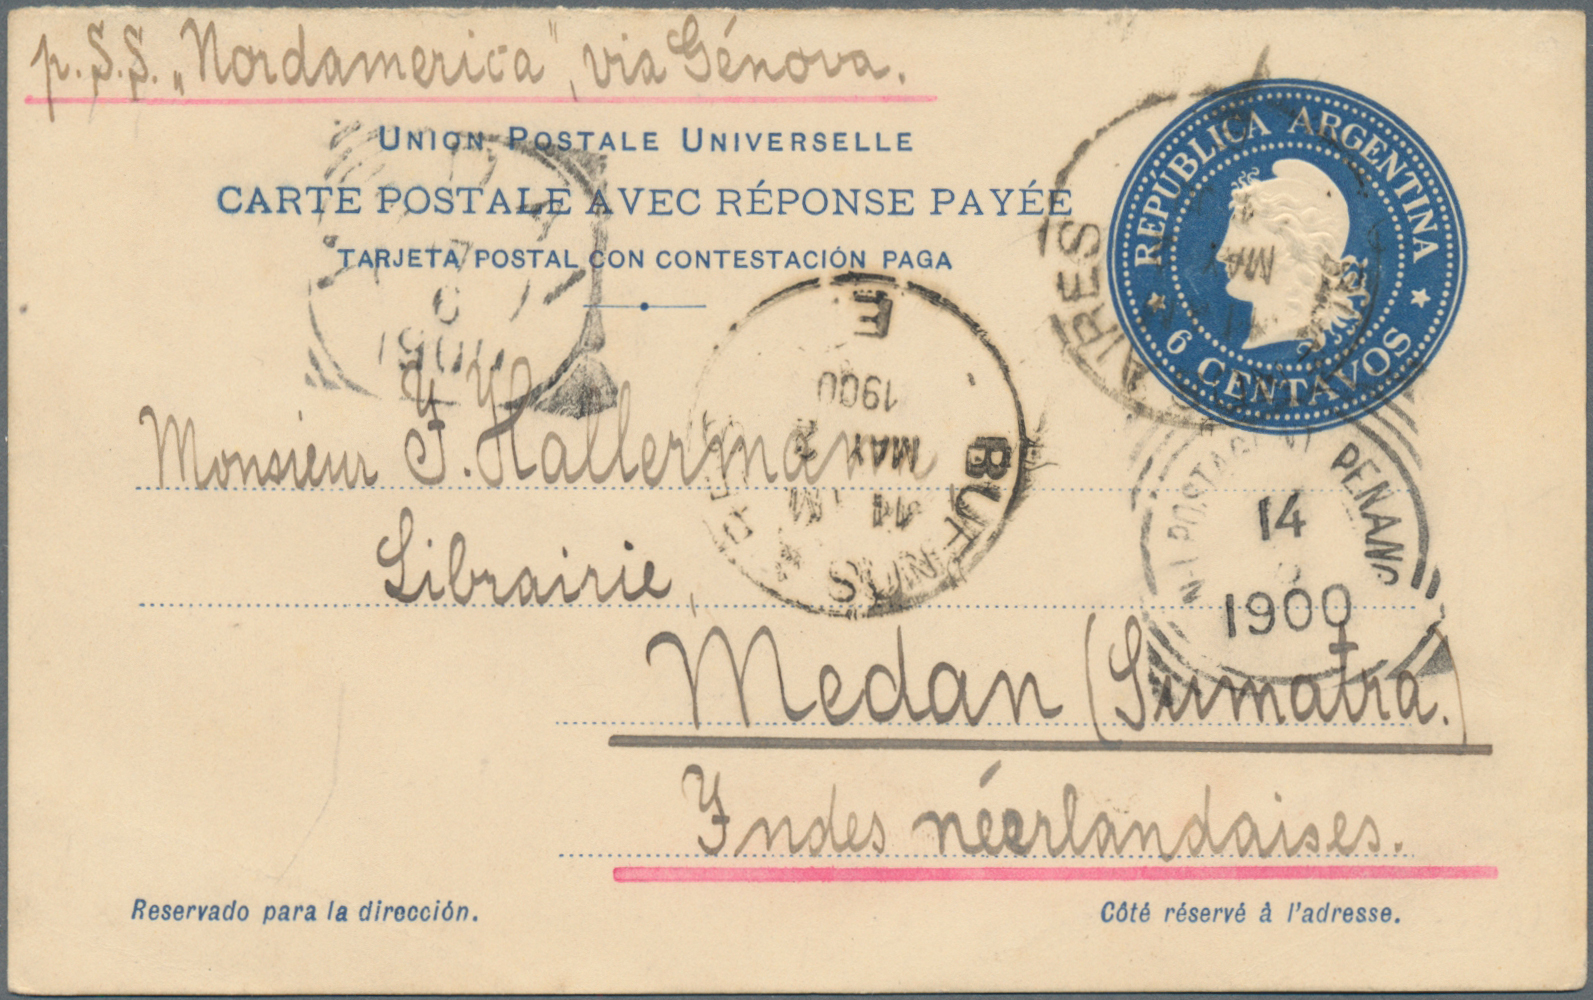 p. S.S. „Nordamerica", via Génova.
UNION POSTALE UNIVERSELLE
CARTE POSTALE AVEC RÉPONSE PAYÉE
TARJETA POSTAL CON CONTESTACIÓN PAGA
REPÚBLICA ARGENTINA
6 CENTAVOS
AIRES
MAY
6
1900
E
1900
MAY
2
11 M
BUENOS AIRES
Monsieur J. Hallermann
Librairie,
PENANG
14
1900
Medan (Sumatra.)
Indes néerlandaises.
Reservado para la dirección.
Côté réservé à l'adresse.